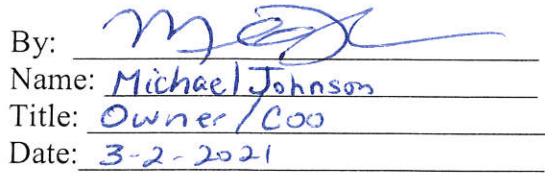 By:
Name: Michael Johnson
Title: Owner/COO
Date: 3-2-2021